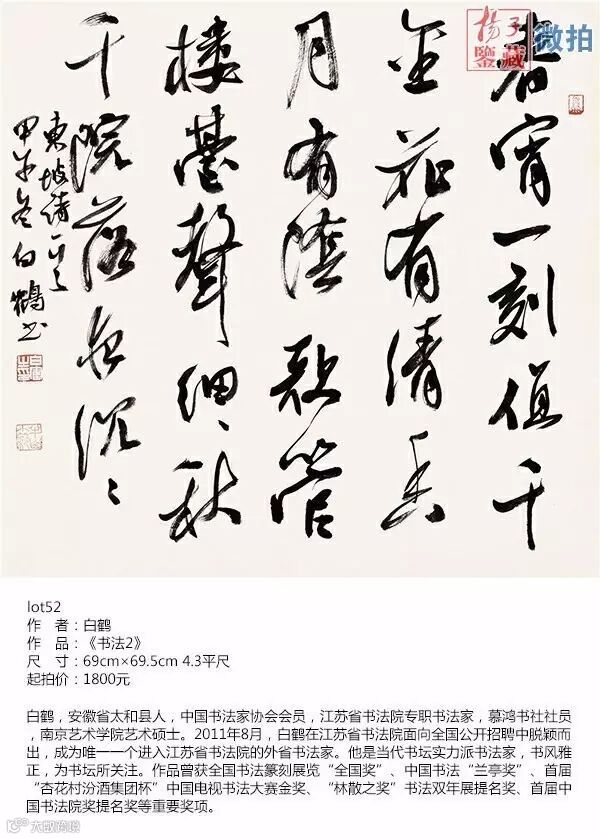 揚子
鑒藏
微拍
春宵一刻值千
金花有清香
月有陰歌管
樓臺聲細〻秋
千院落夜沉〻
東坡詩一首
甲午冬白鶴書
lot52
作 者：白鹤
作 品：《书法2》
尺 寸：69cm×69.5cm 4.3平尺
起拍价：1800元
白鹤，安徽省太和县人，中国书法家协会会员，江苏省书法院专职书法家，慕鸿书社社员
，南京艺术学院艺术硕士。2011年8月，白鹤在江苏省书法院面向全国公开招聘中脱颖而
出，成为唯一一个进入江苏省书法院的外省书法家。他是当代书坛实力派书法家，书风雅
正，为书坛所关注。作品曾获全国书法篆刻展览“全国奖”、中国书法“兰亭奖”、首届
“杏花村汾酒集团杯”中国电视书法大赛金奖、“林散之奖”书法双年展提名奖、首届中
国书法院奖提名奖等重要奖项。